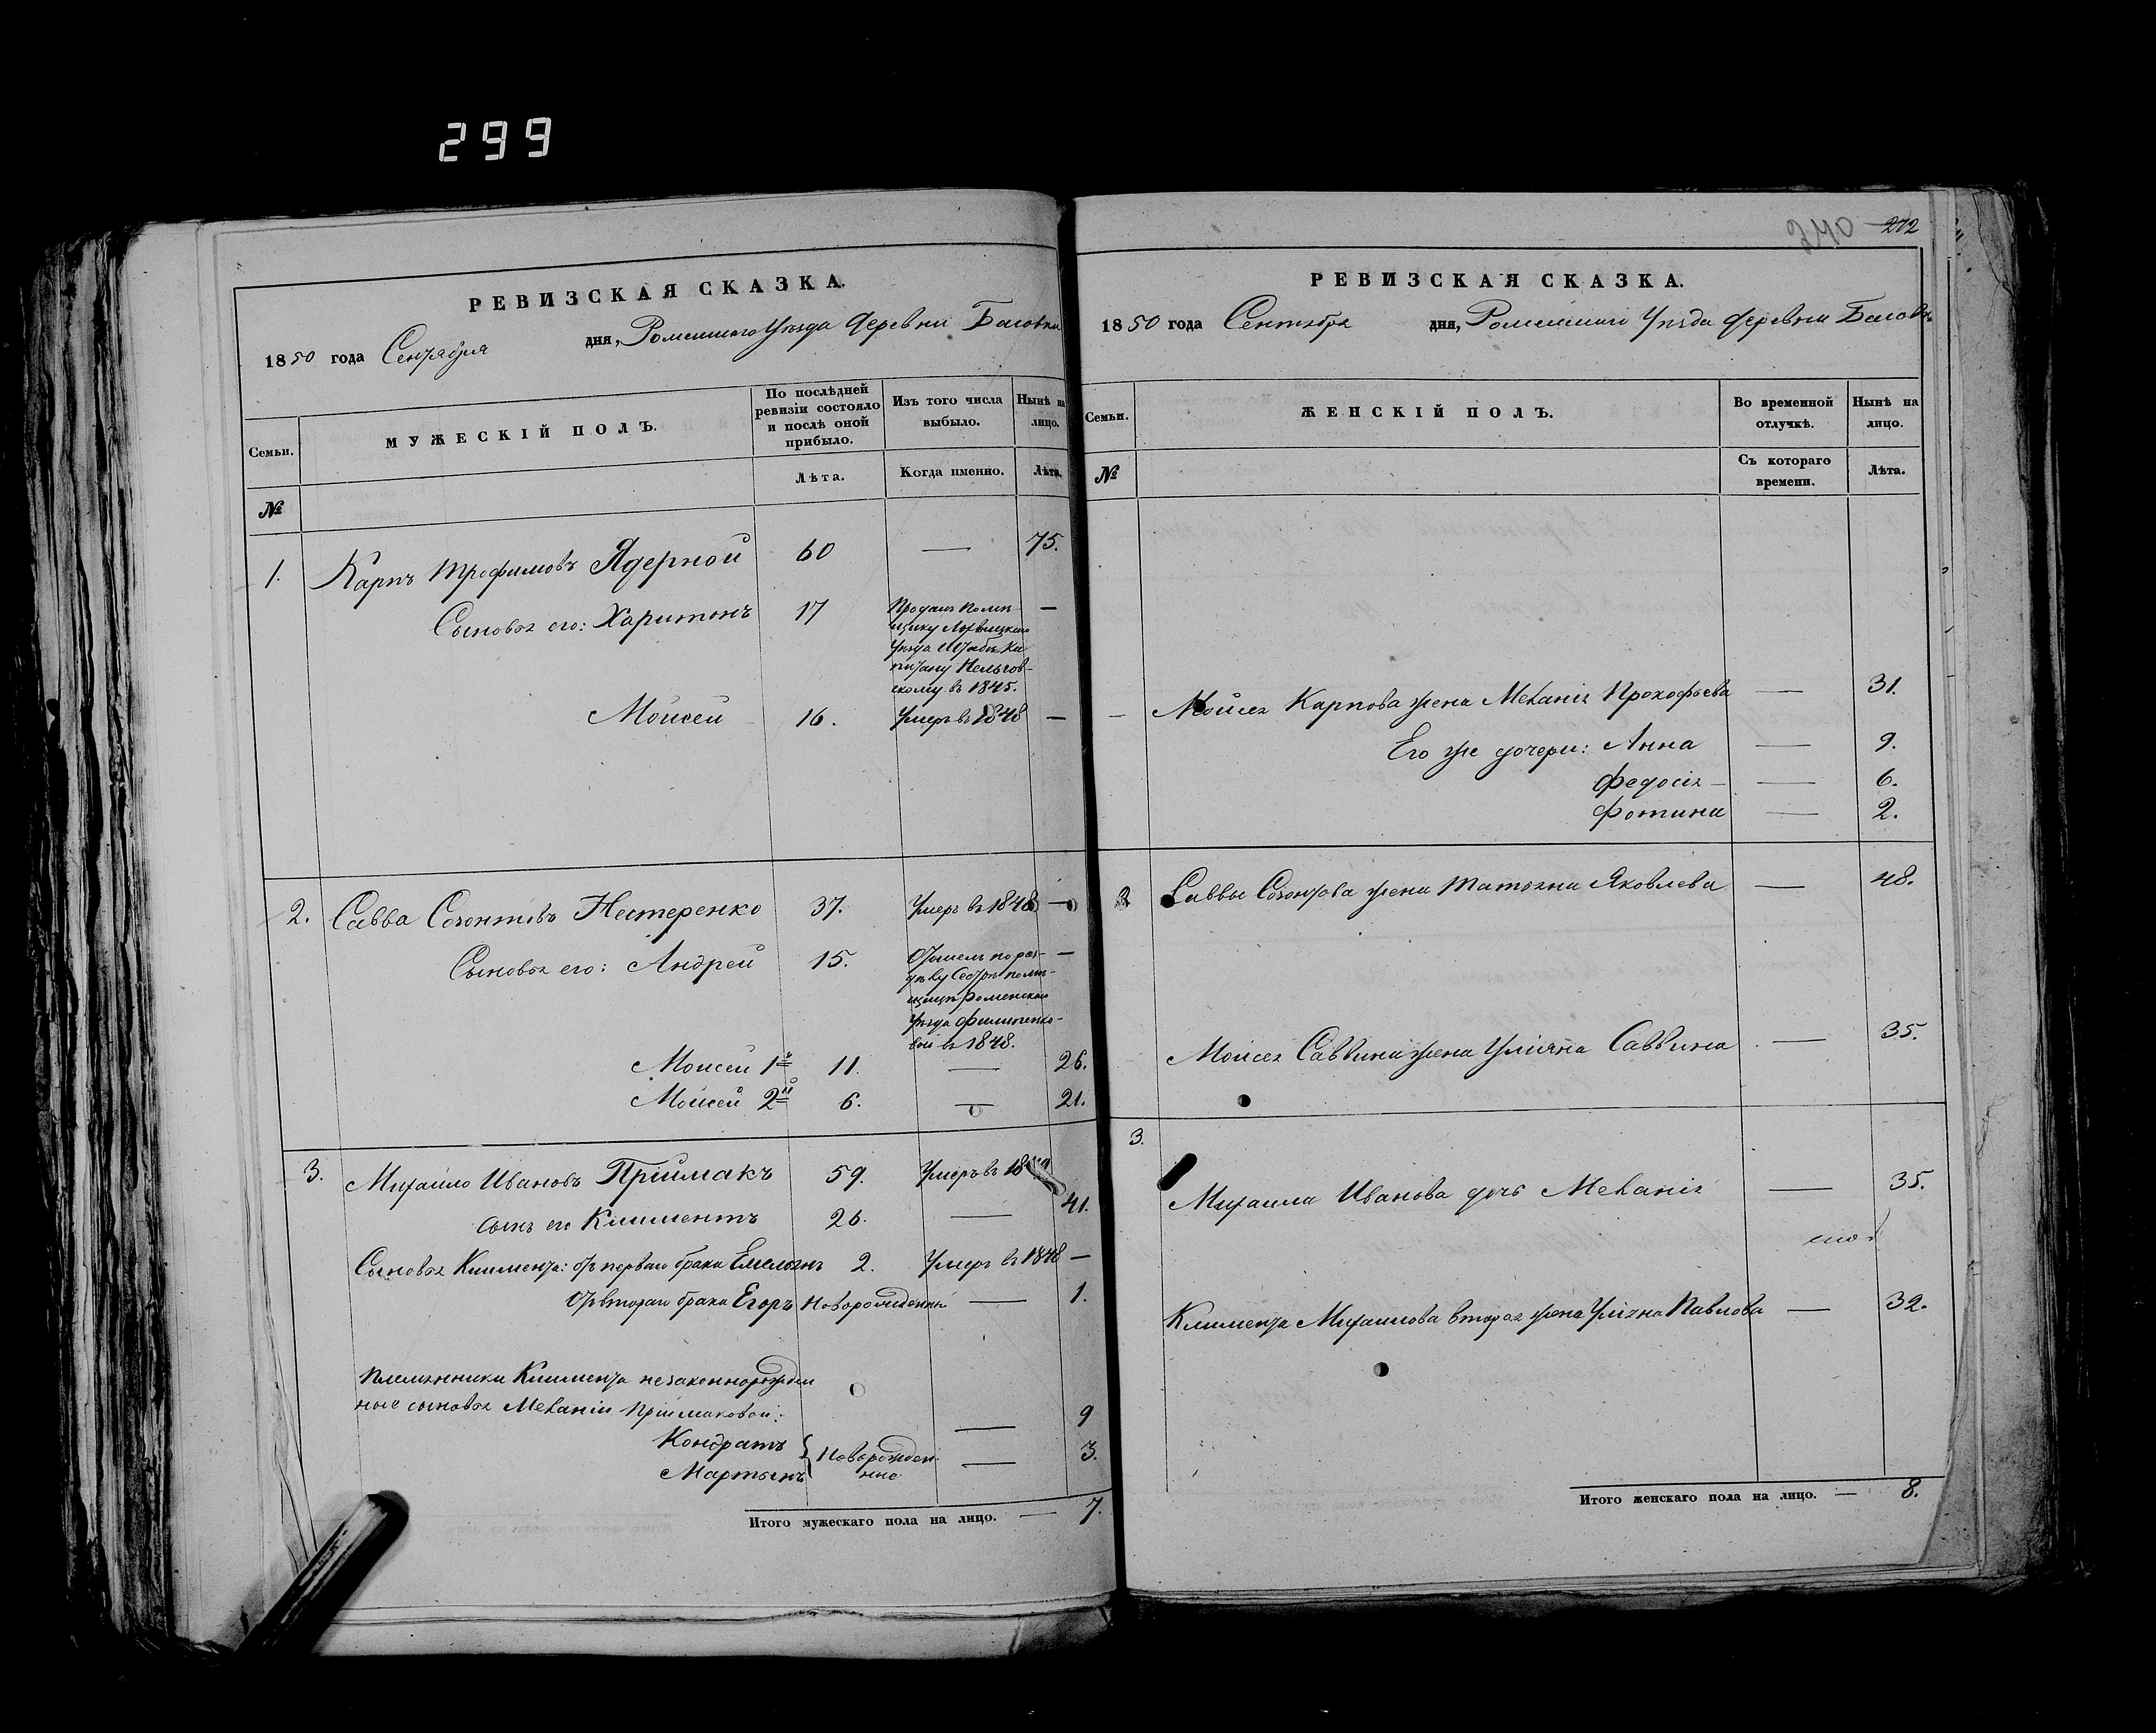 299
РЕВИЗСКАЯ СКАЗКА.
1850 года Сентября дня, Роменского Уѣзда деревни Басовки
Семьи.
МУЖЕСКІЙ ПОЛЪ.
По послѣдней ревизіи состояло и послѣ оной прибыло.
Изъ того числа выбыло.
Нынѣ на лицо.
№
Лѣта.
Когда именно.
Лѣта.
1. Карпъ Трофимовъ Ядерной 60 — 75.
Сыновья его: Харитонъ 17 Проданъ помѣ- —
щику Лохвицкаго
Уѣзда Штабъ Ка-
питану
скому въ 1845.
Моисей 16. Умеръ въ 1848 —
2. Савва Созонтовъ Нестеренко 37. Умеръ въ 1848 —
Сыновья его: Андрей 15. Отошелъ по раз- —
дѣлу Сестрѣ помѣ-
щицѣ Роменскаго
Уѣзда Филипенко-
вой въ 1848.
Моисей 1й 11. — 26.
Моисей 2й 6. — 21.
3. Михайло Ивановъ Пріймакъ 59. Умеръ въ
сынъ его Климентъ 26. — 41.
Сыновья Климента: отъ перваго брака Емельянъ 2. Умеръ въ 1848 —
Отъ втораго брака Егоръ Новорожденный — 1.
Племянники Климента незаконнорожден
ные сыновья Меланіи Пріймаковой:
Кондратъ — 9
Мартынъ Новорожден- ные — 3.
Итого мужескаго пола на лицо. — 7.
240 272
РЕВИЗСКАЯ СКАЗКА.
1850 года Сентября дня, Роменскаго Уѣзда деревни Басовки
Семьи.
ЖЕНСКІЙ ПОЛЪ.
Во временной отлучкѣ.
Нынѣ на лицо.
№
Съ котораго времени.
Лѣта.
— Моисея Карпова жена Меланія Прокофьева — 31.
Его же дочери: Анна — 9.
Федосія — 6.
Фотина — 2.
2 Саввы Созонтова жена Татьяна Яковлева — 48.
Моисея Саввина жена Ульяна Саввина — 35.
3.
Михаила Иванова дочь Меланія — 35.
Климента Михайлова вторая жена Ульяна Павлова — 32.
Итого женскаго пола на лицо. — 8.